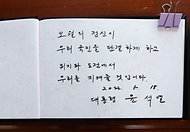 오월의 정신이
우리 국민을 단결하게 하고
위기와 도전에서
우리를 지켜줄 것입니다
2024. 5. 18.
대통령 윤석열